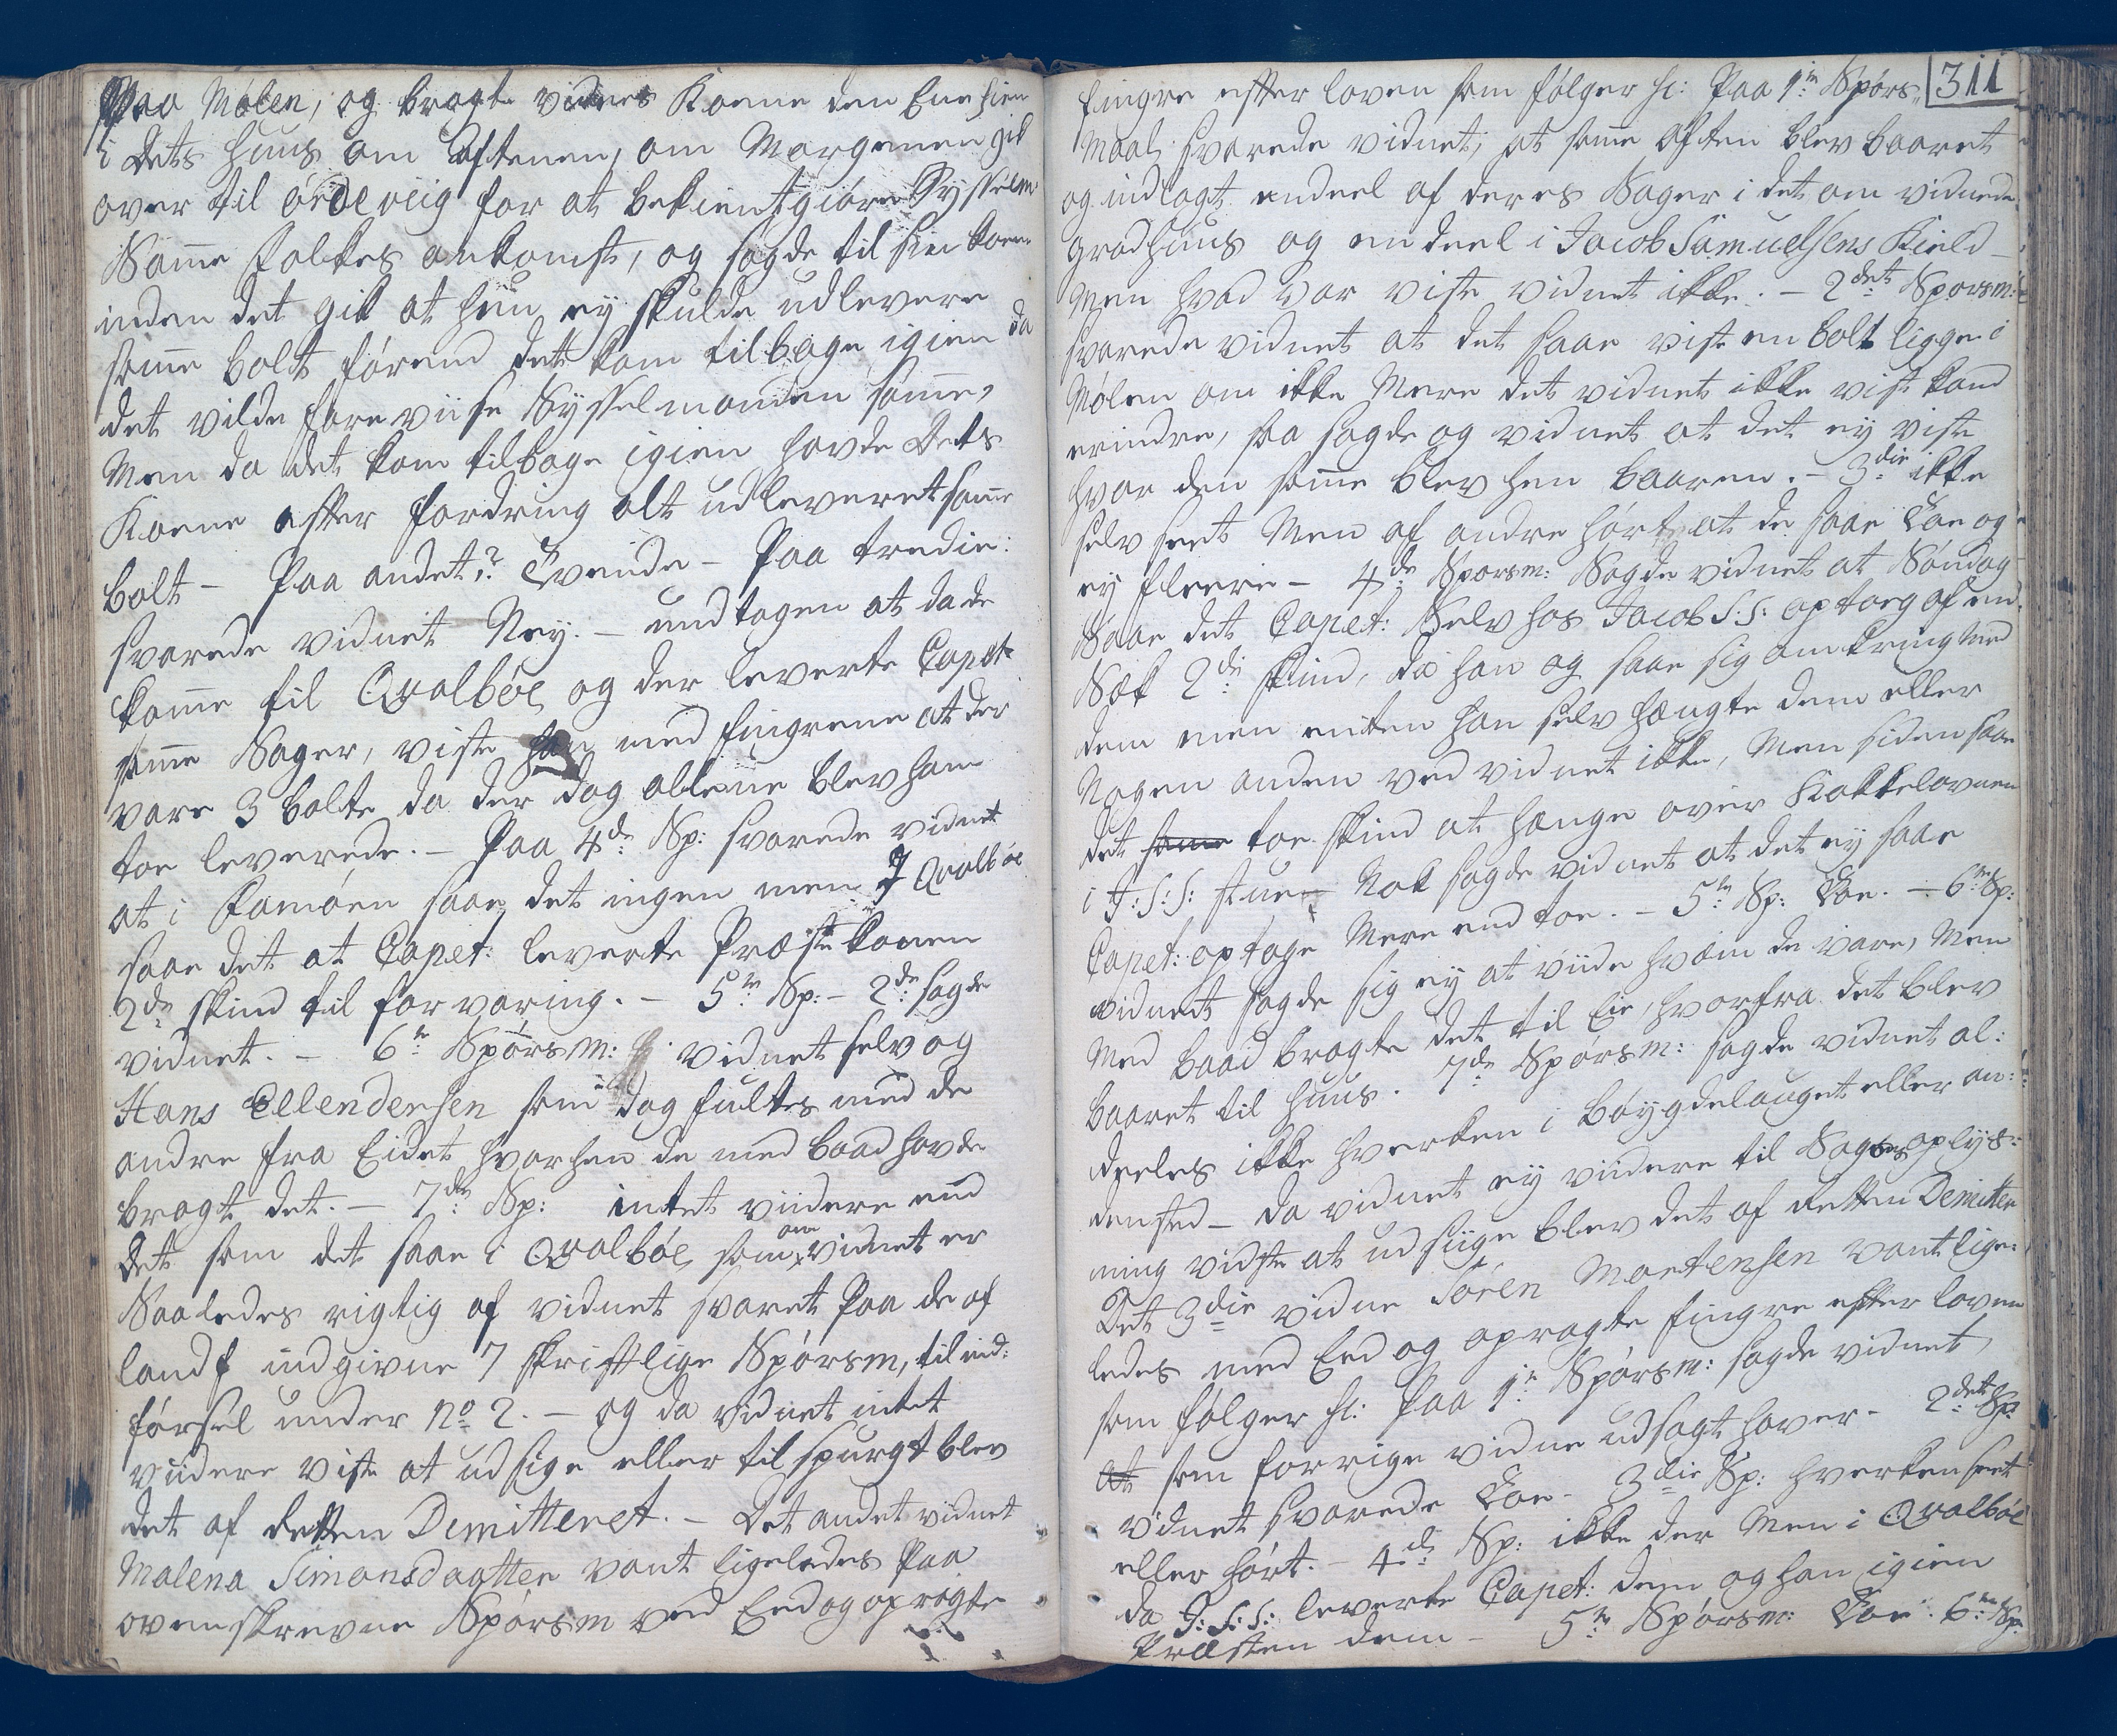 Paa Mølen, og bragte vidnets Kone den Ene hiem
i Dets Huus om Aftenen, om Morgenen gik
over til Ørdeviig for at bekientgiøre Sysselm
Same Folkes ankomst, og sagde til sin kone
inden det gik at hun ey skulde udlevere
same bolt førend det kom tilbage igien da
det vilde foreviise Sysselmanden same,
Men da det kom tilbage igien havde Dets
Kone effter fordring alt udleveret same
bolt – Paa andet,? Tvende – Paa tredie:
svarede vidnet Ney. – undtagen at da de
kome til Qvalbøe og der leverte Capet:
same Sager, viste han med fingrene at der
vare 3 bolte da der dog allene blev ham
toe leverede. – Paa 4de Sp: svarede vidnet
at i Famøen saae det ingen men I Qvalbøe
saae det at Capet: leverte Præstekonen
2de skind til forvaring. – 5te Sp: – 2de sagde
vidnet. – 6te Spørsm: vidnet selv og
Hans Ellendersen som dog fultes med de
andre fra Eidet hvorhen de med baad havde
bragt det. – 7de Sp: intet viidere end
det som det saae i Qvalbøe som om vidnet er
Saaledes rigtig af vidnet svaret Paa de af
landf indgivne 7 skrifftlige Spørsm, til ind:
førsel under No 2. – og da vidnet intet
viidere viste at udsige eller tilspurgt blev
det af Retten Demitteret. – Det andet vidnet
Malena Simonsdaatter vant ligeledes Paa
ovenskrevne Spørsm ved Eed og opragte
311
fingre effter loven som følger sc: Paa 1te Spørs„
Maal svarede vidnet, at same Aften blev baaret
og indlagt endeel af deres Sager i det om vidnede
Gradhuus og en deel i Jacob Samuelsens Kield –
Men hvad var viste vidnet ikke. – 2det Sporsm:
svarede vidnet at det saae vist en Bolt ligge i
Mølen om ikke Mere det vidnet ikke vist kand
erindre, saa sagde og vidnet at det ey viste
hvor den same blev hen baaren. – 3die ikke
selv seet Men af andre hørt at de saae Toe og
ey fleere – 4de Sporsm: Sagde vidnet at Søndag
Saae det Capet: Selv hos Jacob S:S: optoeg af en
Sæk 2de skind, da han og saae sig omkring Med
dem men enten han selv hængte dem eller
Nogen anden ved vidnet ikke, Men siden saae
det same toe skind at hænge over Kakkelovnen
i J:S:S: stue Nok sagde vidnet at det ey saae
Capet: optage Mere end toe. – 5te Sp: Toe. – 6te Sp:
vidnet sagde sig ey at viide hvem de vare, Men
Med baad bragte det til Eie, hvorfra det blev
baaret til Huus. 7de Spørsm: sagde vidnet al:
deeles ikke hverken i bøygdelauget eller an:
densted – da vidnet ey viidere til Sagens oplys:
ning vidste at udsiige blev det af Retten Demitter
Det 3die vidne Søren Mortensen vant lige:
ledes med Eed og opragte fingre effter loven
som følger sc: Paa 1te Spørsm: sagde vidnet,
at som forrige vidne udsagt haver – 2det Sp:
vidnet svarede Toe – 3die Sp: hverken seet
eller hørt. – 4de Sp: ikke der Men i Qvalbøe
da J:S:S: leverte Capet: dem og han igien
Præsten dem – 5te Spørsm: Toe. 6te Sp: